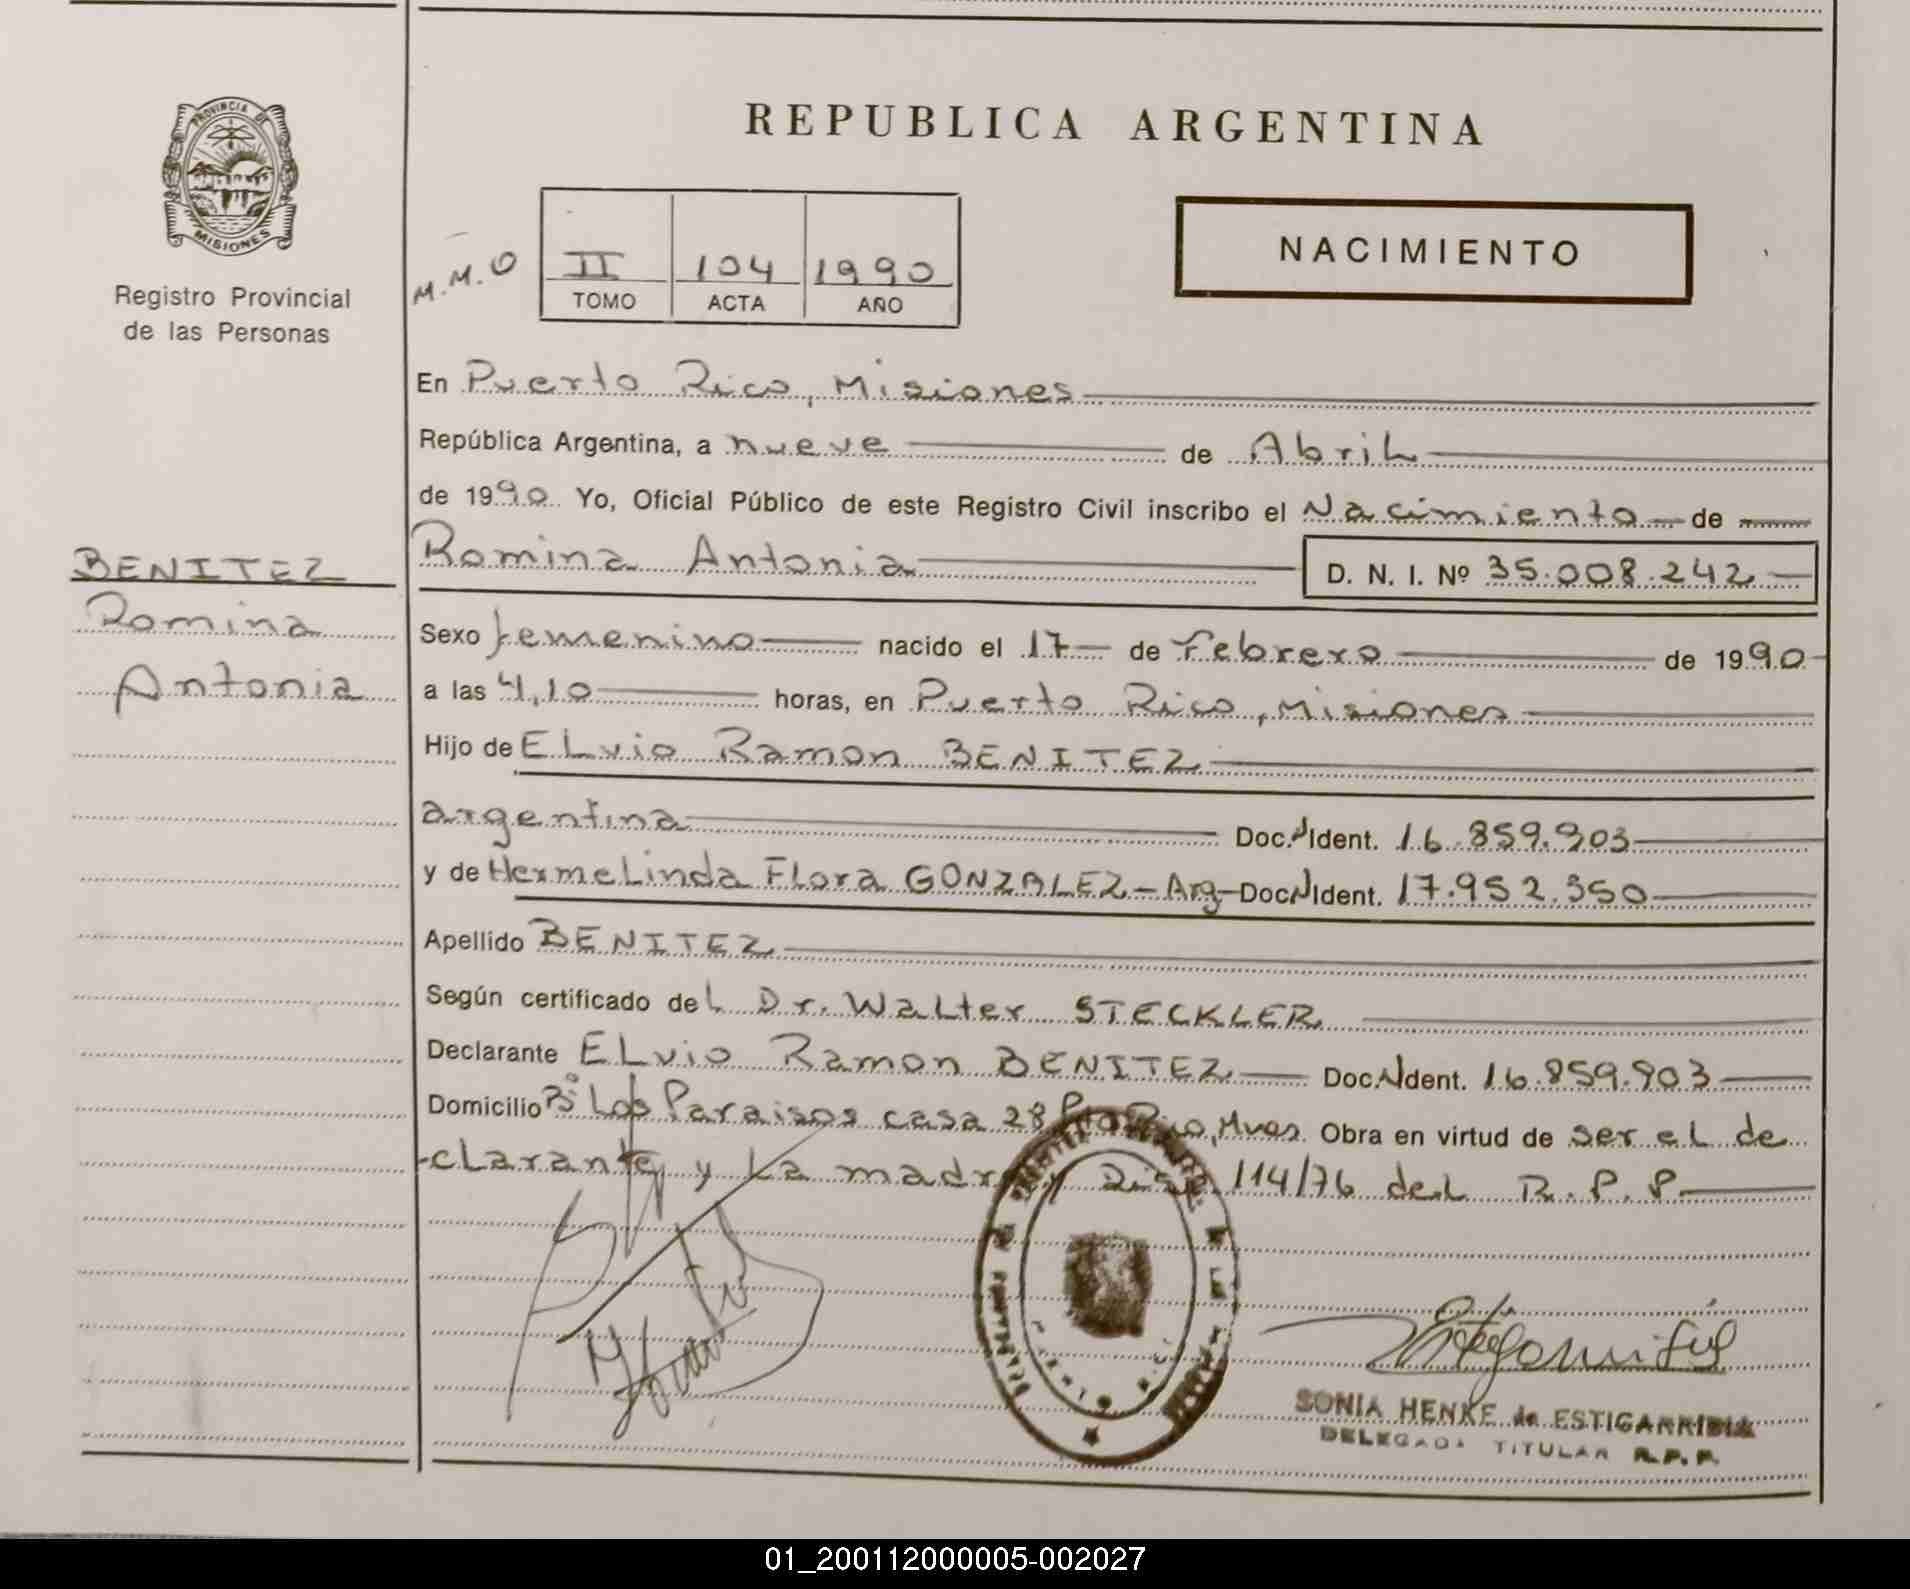 PROVINCIA DE
MISIONES
Registro Provincial
de las Personas
BENITEZ
Romina
Antonia
REPUBLICA ARGENTINA
M.M.O
II 104 1990
TOMO ACTA AÑO
NACIMIENTO
En Puerto Rico, Misiones
República Argentina, a nueve de Abril
de 1990 Yo, Oficial Público de este Registro Civil inscribo el Nacimiento de
Romina Antonia D. N. I. Nº 35.008.242
Sexo femenino nacido el 17 de Febrero de 1990
a las 4,10 horas, en Puerto Rico, Misiones
Hijo de ELvio Ramon BENITEZ
argentina Doc. Ident. 16.859.903
y de HermeLinda FLora GONZALEZ - Arg - Doc Ident. 17.952.350
Apellido BENITEZ
Según certificado del Dr. Walter STECKLER
Declarante ELvio Ramon BENITEZ Doc Ident. 16.859.903
Domicilio Bº Los Paraisos casa 28 Pto Rico, Mnes Obra en virtud de ser el de
clarante y La madre y Disp. 114/76 del R.P.P
SONIA HENKE de ESTIGARRIBIA
DELEGADA TITULAR R.P.P.
01_200112000005-002027